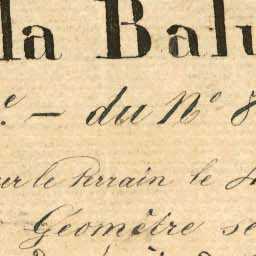 la Balu
e. — du No 8
sur le terrain le
Géomètre se